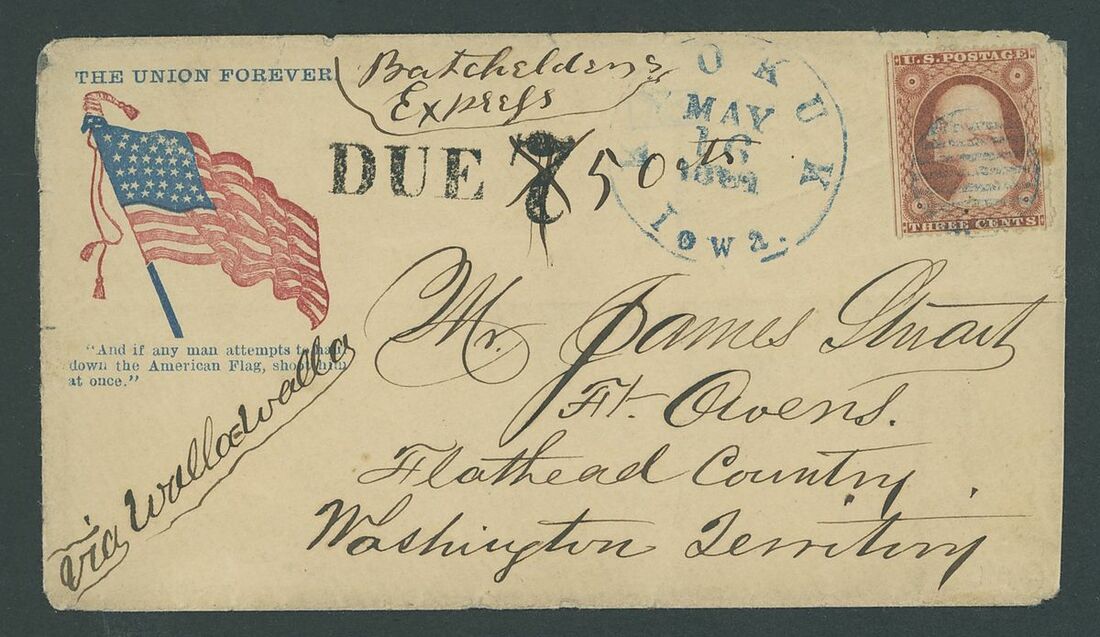 THE UNION FOREVER
Batchelders
Express
DUE 7 50 cts
KEOKUK
MAY
16
Iowa.
U.S. POSTAGE
THREE CENTS
"And if any man attempts to haul
down the American Flag, shoot him
at once."
Mr. James Stuart
Ft. Owens.
Flathead Country.
Washington Territory
Via Walla=walla